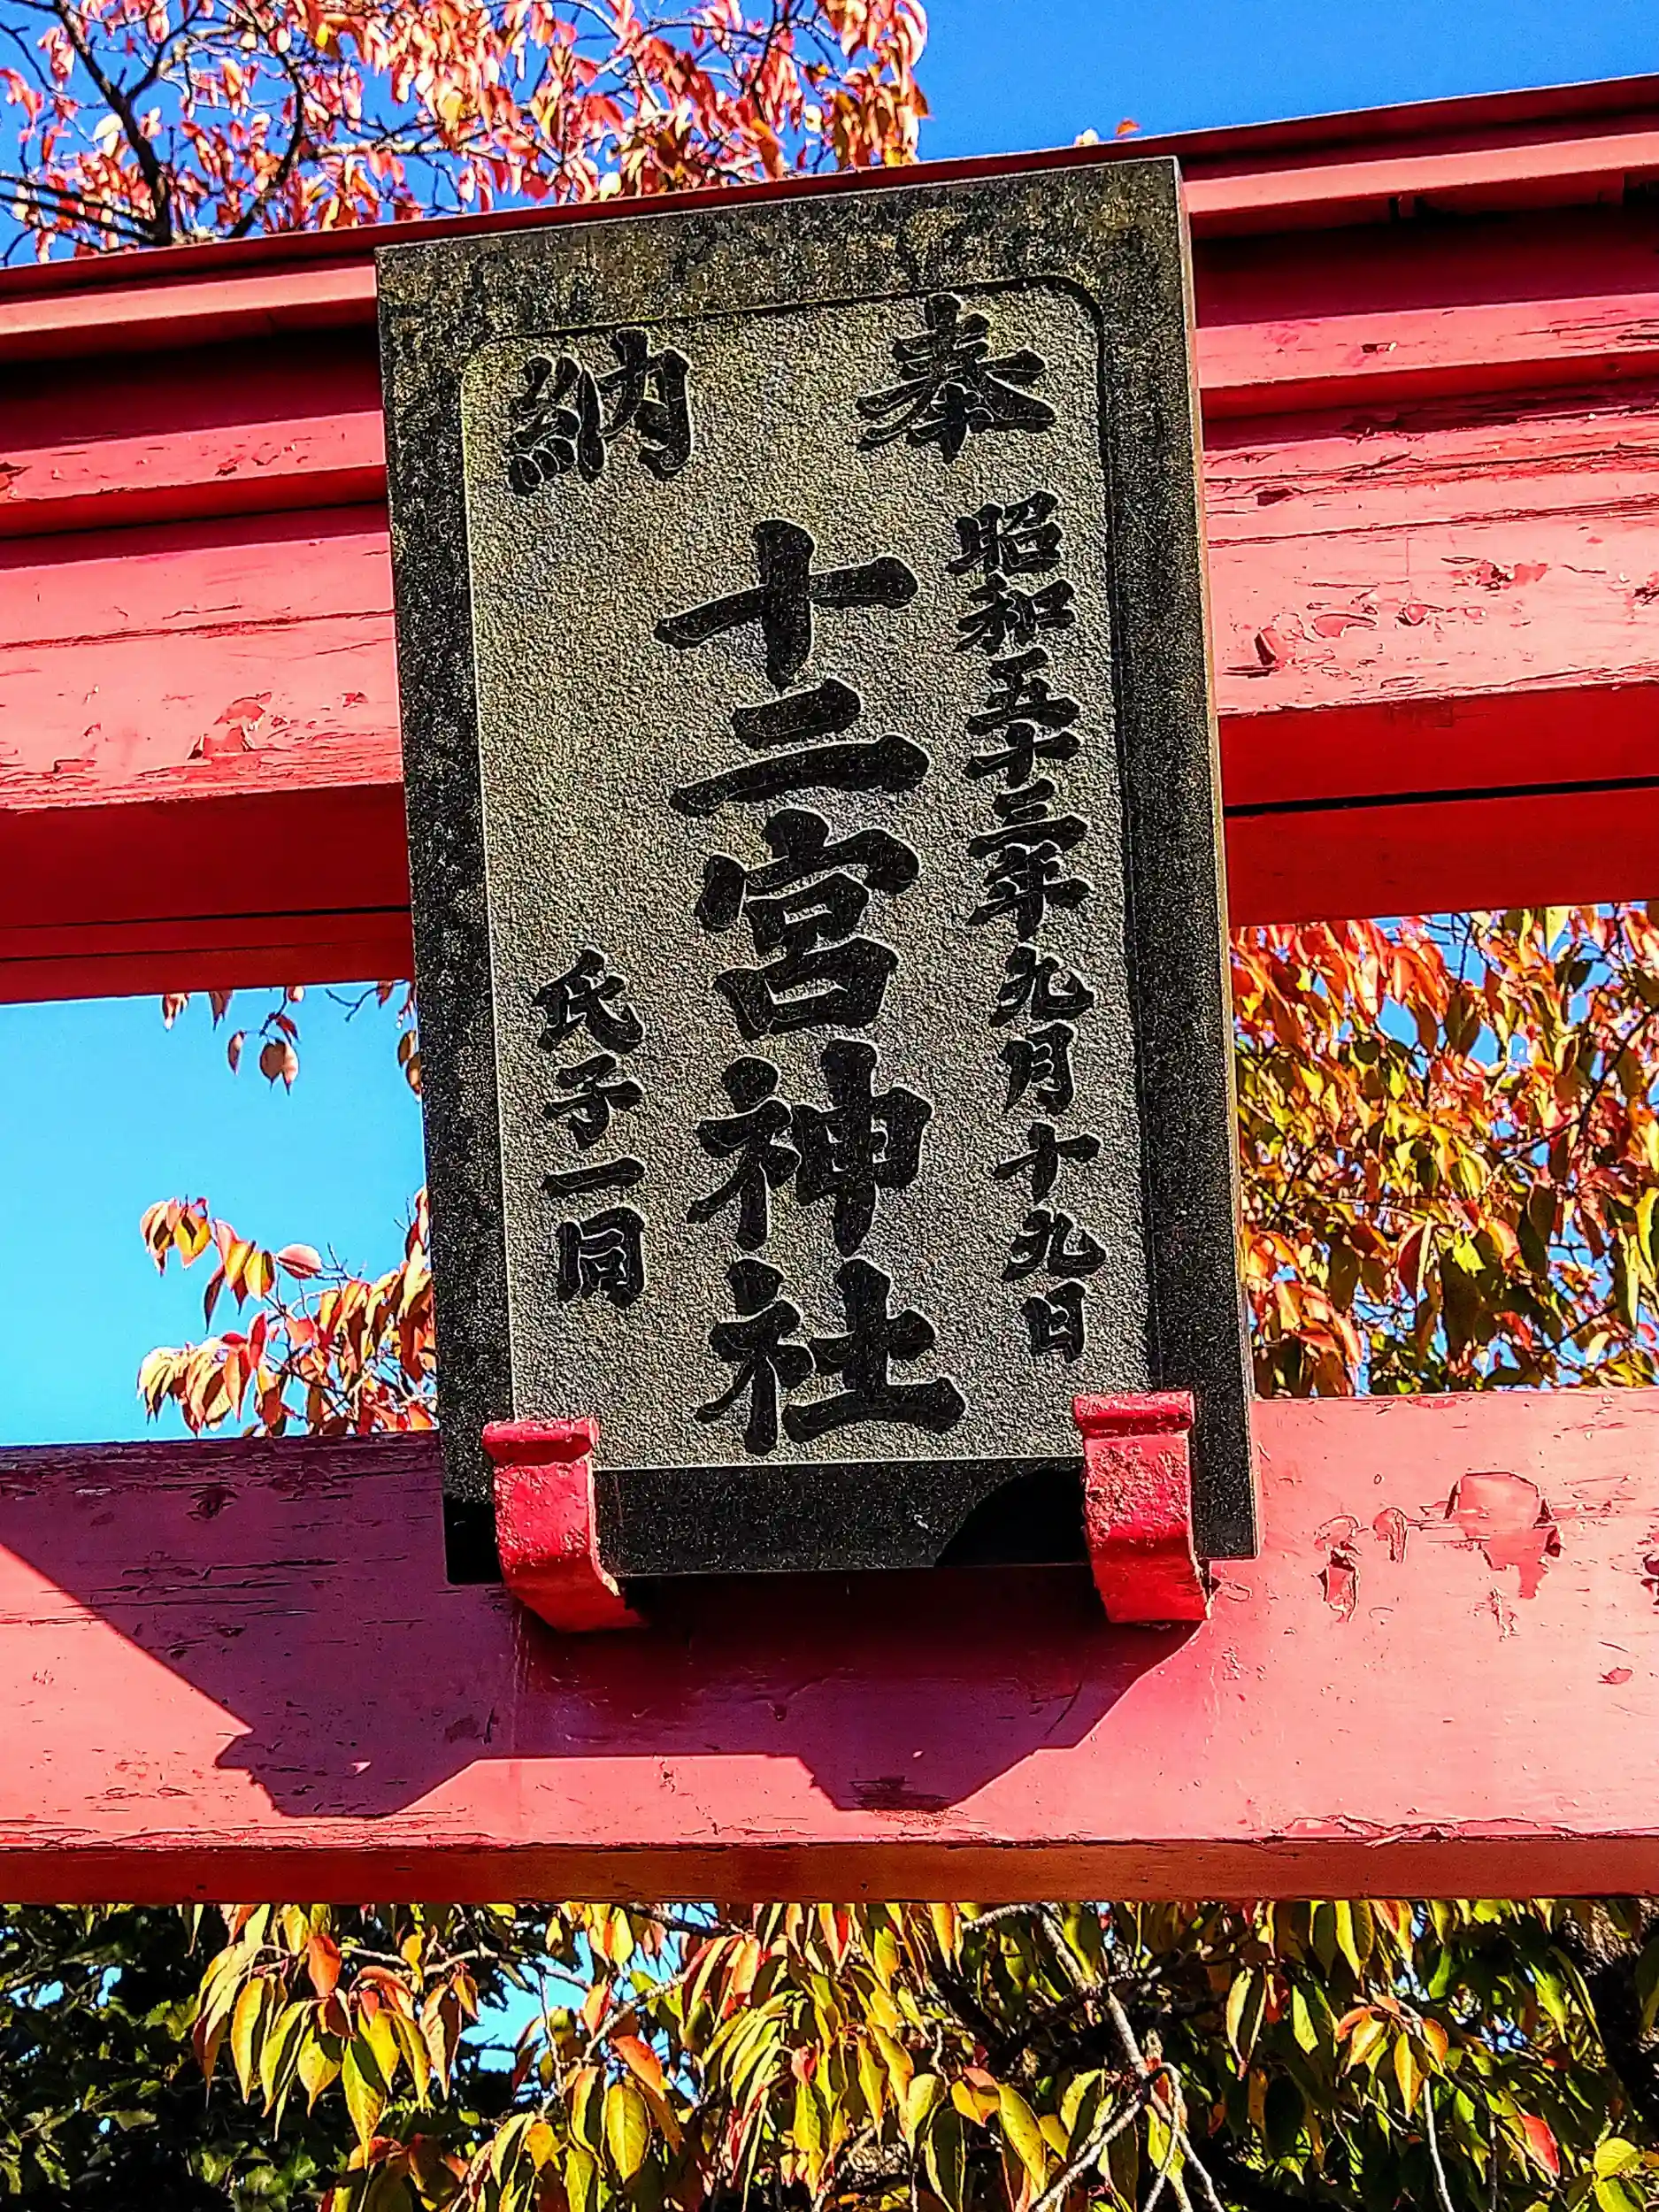 奉納
昭和五十三年九月十九日
十二宮神社
氏子一同